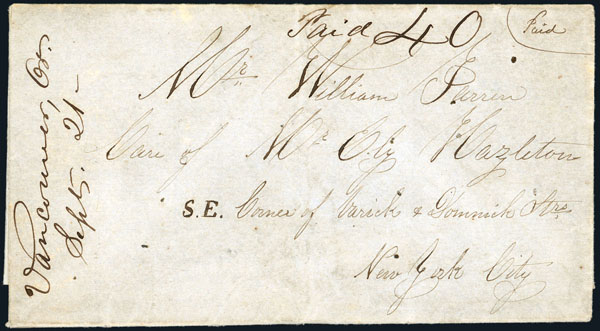 Paid 40
Paid
Vancouver, Or.
Sept. 21-
Mr. William Farren
Care of Mr. Hazleton
S.E. Corner of Varick & Dominick Strs
New York City